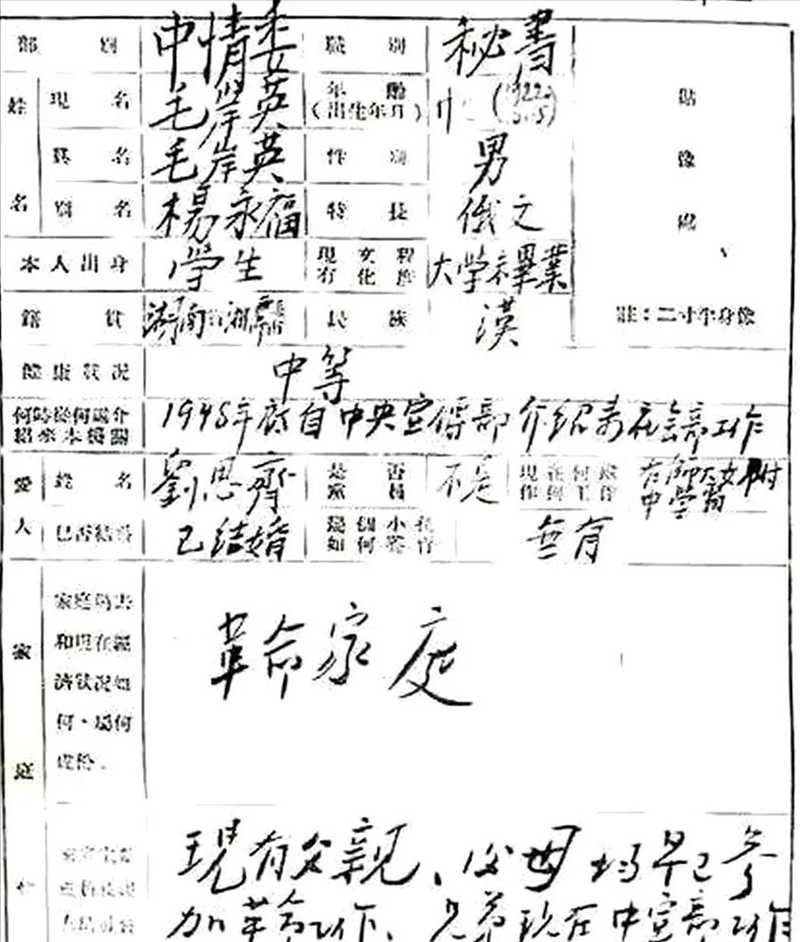 部別 申情委 職別 秘書
姓名 現名 毛岸英 年齡(出生年月)
眞名 毛岸英 性別 男
別名 楊永福 特長 俄文
貼像處
本人出身 學生 現有文化程度 大学未畢業
籍貫 湖南 湘 民族 漢
註:二寸半身像
健康狀況 中等
何時從何處介紹來本機關 1948年底自中央宣傳部介紹来社會部工作
愛人 姓名 劉思齊 是否黨員 不是 現在何處作何工作 中學
已否結婚 已结婚 幾個小孩如何養育 無有
家庭 家庭過去和現在經濟狀況如何、屬何成份。 革命家庭
現有父親、父母均早已参
加革命工作、兄弟現在中宣部工作